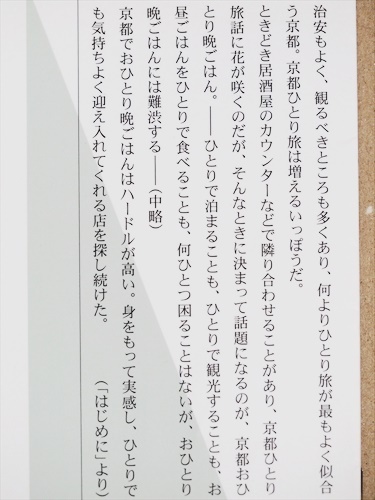 治安もよく、観るべきところも多くあり、何よりひとり旅が最もよく似合
う京都。京都ひとり旅は増えるいっぽうだ。
ときどき居酒屋のカウンターなどで隣り合わせることがあり、京都ひとり
旅話に花が咲くのだが、そんなときに決まって話題になるのが、京都おひ
とり晩ごはん。――ひとりで泊まることも、ひとりで観光することも、お
昼ごはんをひとりで食べることも、何ひとつ困ることはないが、おひとり
晩ごはんには難渋する――(中略)
京都でおひとり晩ごはんはハードルが高い。身をもって実感し、ひとりで
も気持ちよく迎え入れてくれる店を探し続けた。
(「はじめに」より)